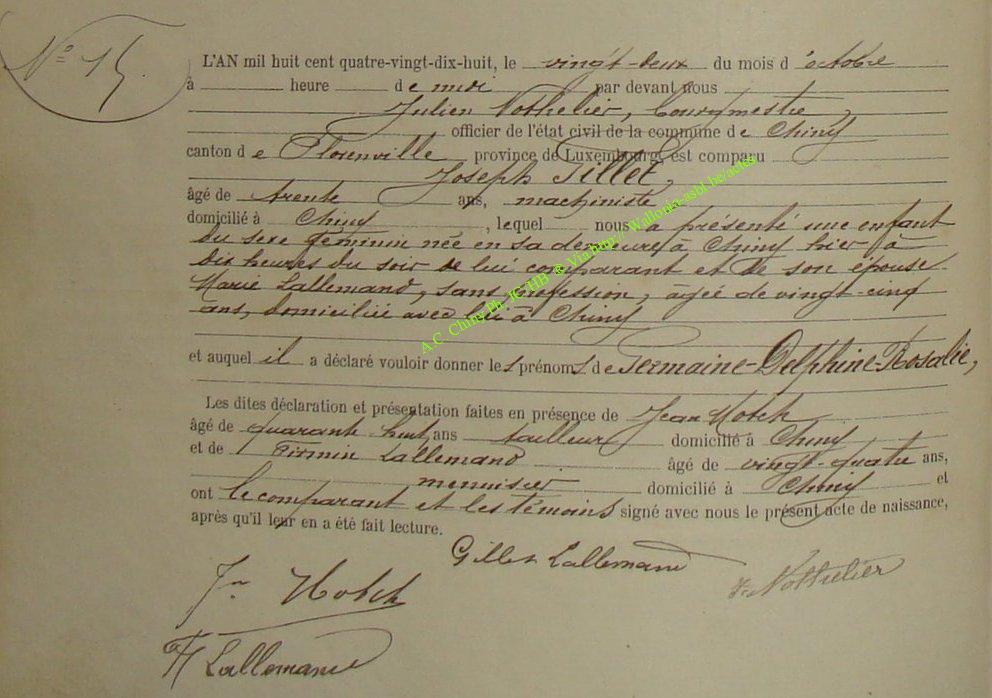 N° 15
L'AN mil huit cent quatre-vingt-dix-huit, le vingt-deux du mois d'octobre
à heure de midi par devant nous
Julien Nothelier, bourgmestre,
officier de l'état civil de la commune de Chiny
canton de Florenville province de Luxembourg, est comparu
Joseph Gillet,
âgé de trente ans, machiniste
domicilié à Chiny, lequel nous a présenté une enfant
du sexe féminin née en sa demeure à Chiny hier à
dix heures du soir de lui comparant et de son épouse
Marie Lallemand, sans profession, âgée de vingt-cinq
ans, domiciliée avec lui à Chiny
et auquel il a déclaré vouloir donner les prénoms de Germaine-Delphine-Rosalie,
Les dites déclaration et présentation faites en présence de Jean Hotch
âgé de quarante huit ans tailleur domicilié à Chiny
et de Firmin Lallemand âgé de vingt-quatre ans,
menuisier domicilié à Chiny et
ont le comparant et les témoins signé avec nous le présent acte de naissance,
après qu'il leur en a été fait lecture.
Gillet Lallemand
Jn Hotch
Jn Nothelier
F Lallemand
A.C Chiny Ph. JG-HB & Via http://Wallonia-asbl.be/actes